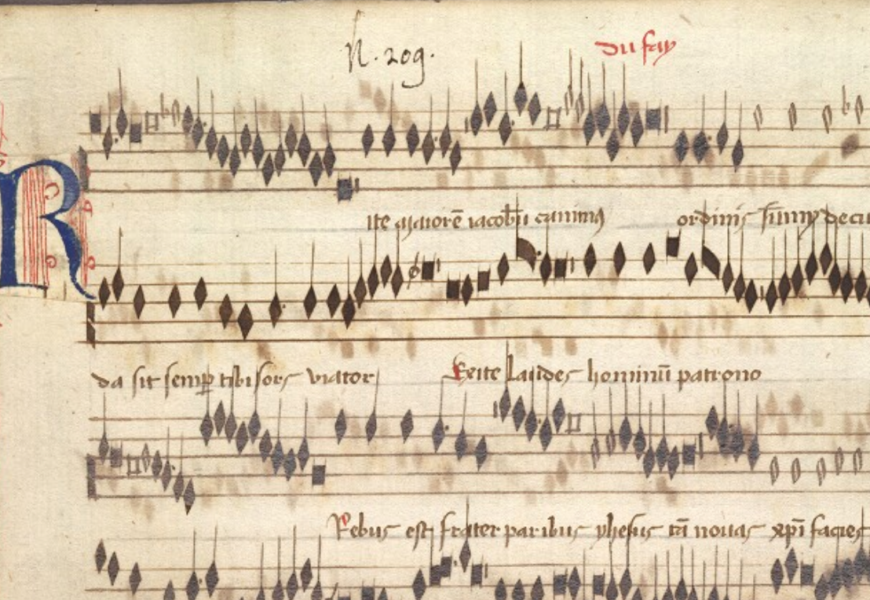 N. 209.
du fay
Rite maiorē iacobū canimus ordinis sūmū decu
da sit semp tibi sors viator Recite laudes hominū patrono
Rebus est frater paribus ephesus tā nouas xp̄i facies